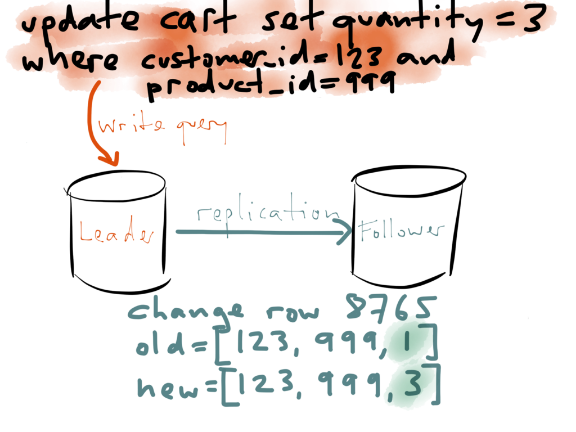 update cart set quantity = 3
where customer_id=123 and
product_id=999
write query
Leader
replication
Follower
change row 8765
old=[123, 999, 1]
new=[123, 999, 3]